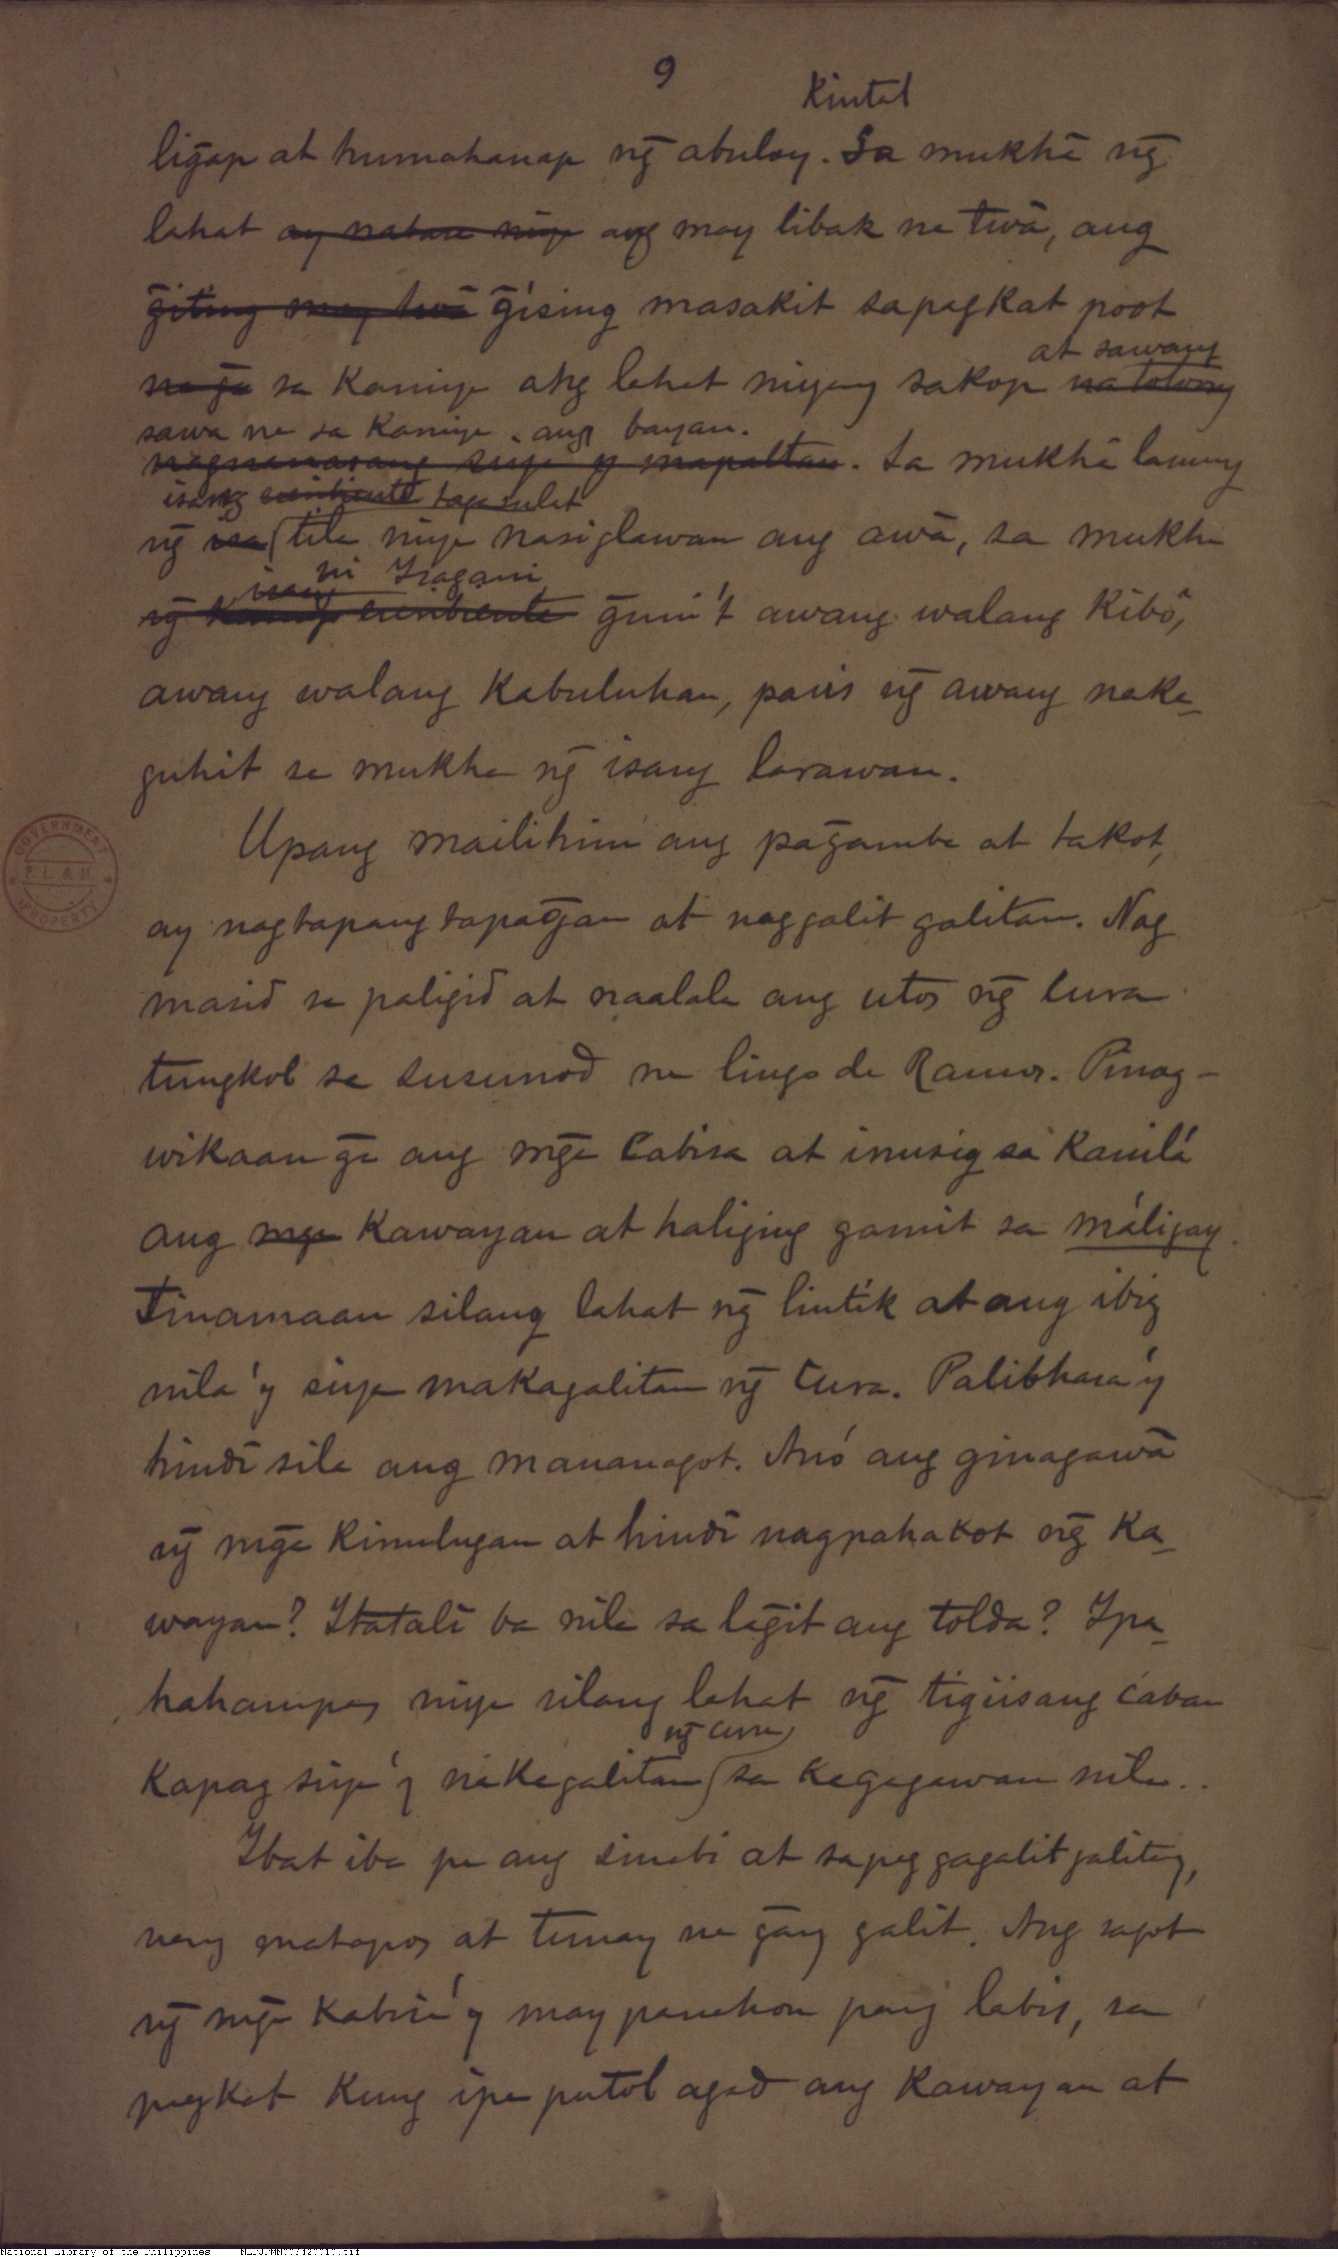 9
Kintal
lig̃ap at humahanap ng̃ abuloy. Sa mukhâ ng̃
lahat ay nataw niya ang may libak na tiwâ, ang
g̃iting may tuâ g̃ising masakit sapagkat poot
at sawang
na g̃a sa kaniya ang lahat niyang sakop
sawa na sa kaniya ang bayan.
nagnanasang siya y mapaltan. Sa mukhâ lamang
isang escribiente taga sulat
ng̃ isa tila niya nasiglawan ang awà, sa mukha
isang ni Isagani
ng̃ kaniya escribiente g̃uni't awang walang kibô,
awang walang kabuluhan, paris ng̃ awang naka-
guhit sa mukha ng̃ isang larawan.
Upang mailihim ang pag̃amba at takot,
ay nagtapangtapag̃an at naggalit galitan. Nag
masid sa paligid at naalala ang utos ng̃ cura
tungkol sa susunod na lingo de Ramos. Pinag-
wikaan g̃a ang mg̃a cabisa at inusig sa kanilá
ang mga kawayan at haliging gamit sa máligay.
Tinamaan silang lahat ng̃ lintik at ang ibig
nila'y siya makagalitan ng̃ cura. Palibhasa'y
hindî sila ang mananagot. Anó ang ginagawâ
ng̃ mg̃a kinulugan at hindî nagpahakot ng̃ ka-
wayan? Itatali ba nila sa lag̃it ang tolda? Ipa-
hahampas niya silang lahat ng̃ tigiisang caban
ng̃ cura
kapag siya'y nakagalitan sa kagagawan nila..
Ibat iba pa ang sinabi at sapag gagalit galitan,
nang matapos at tunay na g̃ang galit. Ang sagot
ng̃ mg̃a kabisa'y may panahon pang labis, sa
pagkat kung ipa putol agad ang kawayan at
GOVERNMENT
P. L. & M.
PROPERTY
National Library of the Philippines